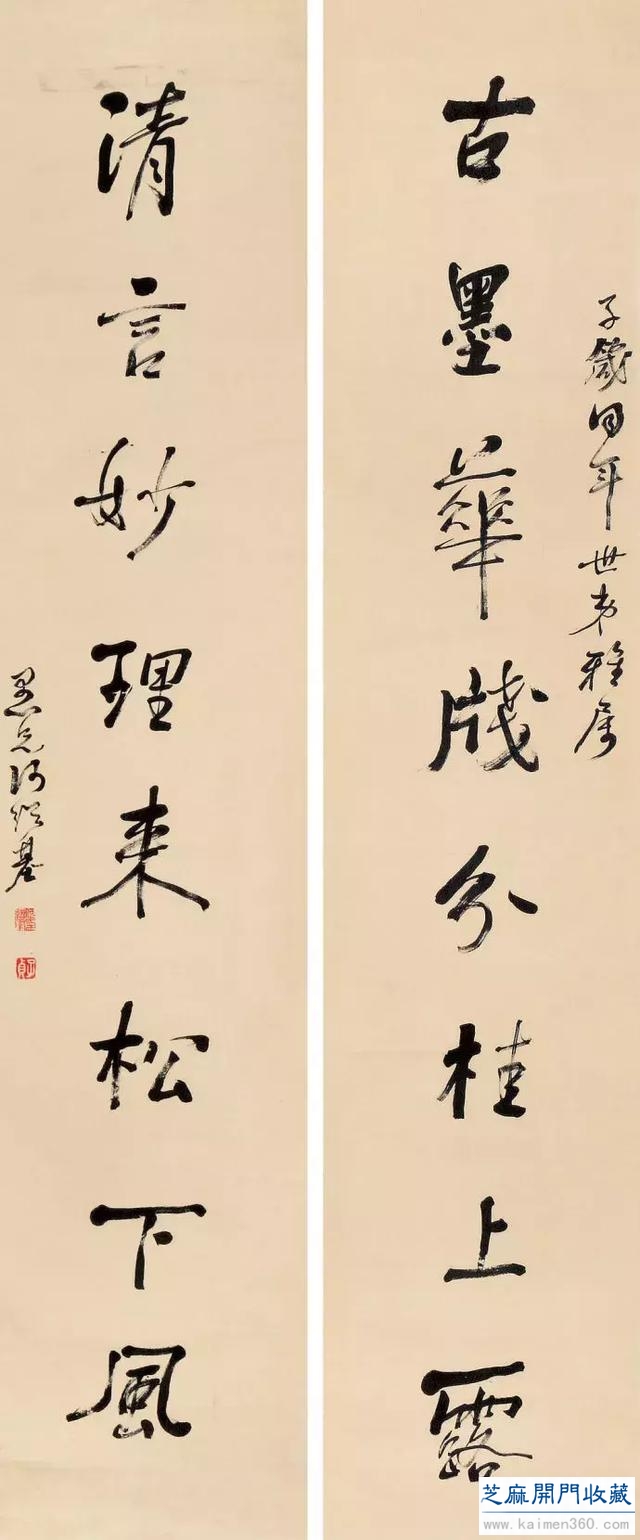 子箴同年世弟雅屬
古墨華牋分桂上露
清言妙理來松下風
愚兄何紹基
子貞
芝麻開門收藏
www.kaimen360.com